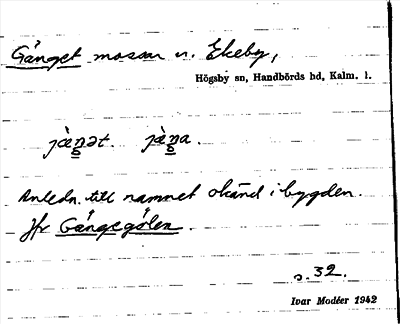 Gånget mossar v. Ekeby,
Högsby sn, Handbörds hd, Kalm. l.
jàŋət. jàŋa.
Anledn. till namnet okänd i bygden.
Jfr Gångegölen.
s. 32.
Ivar Modéer 1942